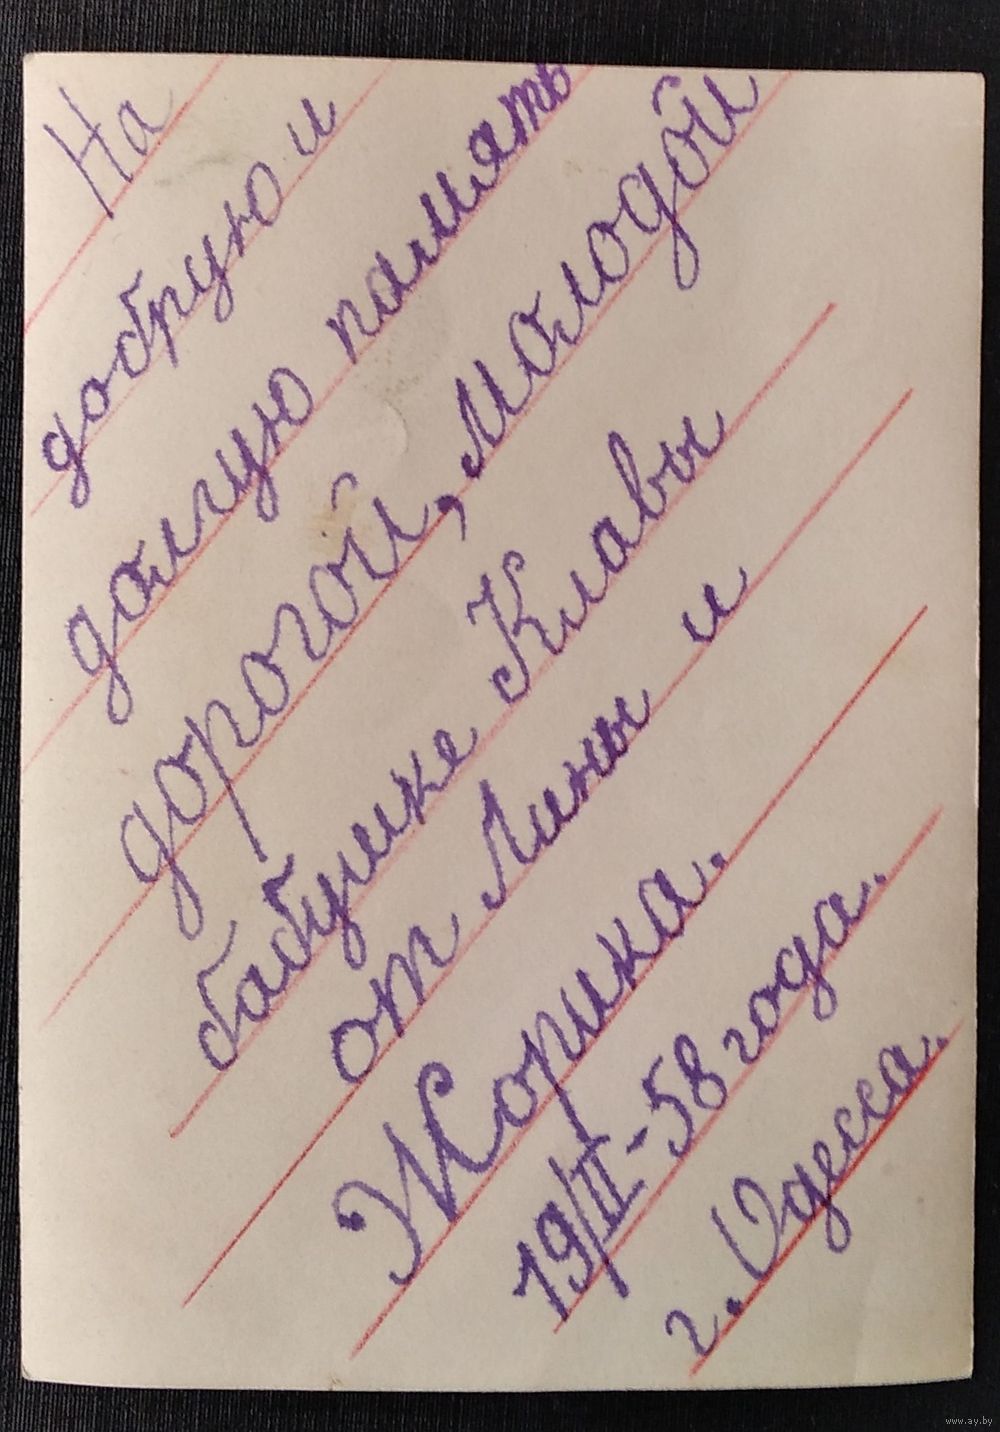 На
добрую и
долгую память
дорогой, молодой
бабушке Клавы
от Лины и
Жорика.
19/II-58 года.
г. Одесса.
www.ay.by